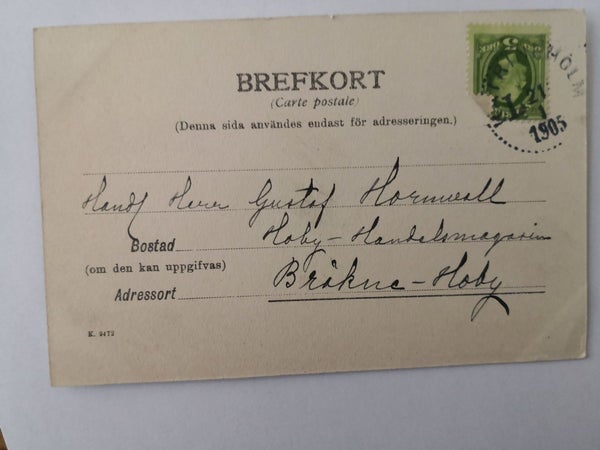 BREFKORT
(Carte postale)
(Denna sida användes endast för adresseringen.)
21
1905
Handl Herr Gustaf Hornwall
Bostad Hoby-Handelsmagasin
(om den kan uppgifvas)
Adressort Bräkne-Hoby
K. 2472